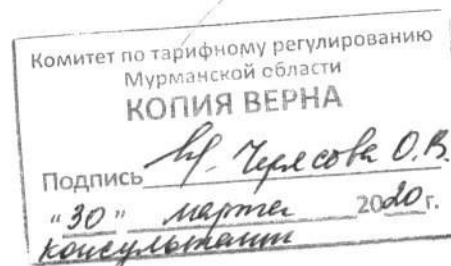 Комитет по тарифному регулированию
Мурманской области
КОПИЯ ВЕРНА
Подпись Черясова О.В.
"30" марта 2020 г.
консультант